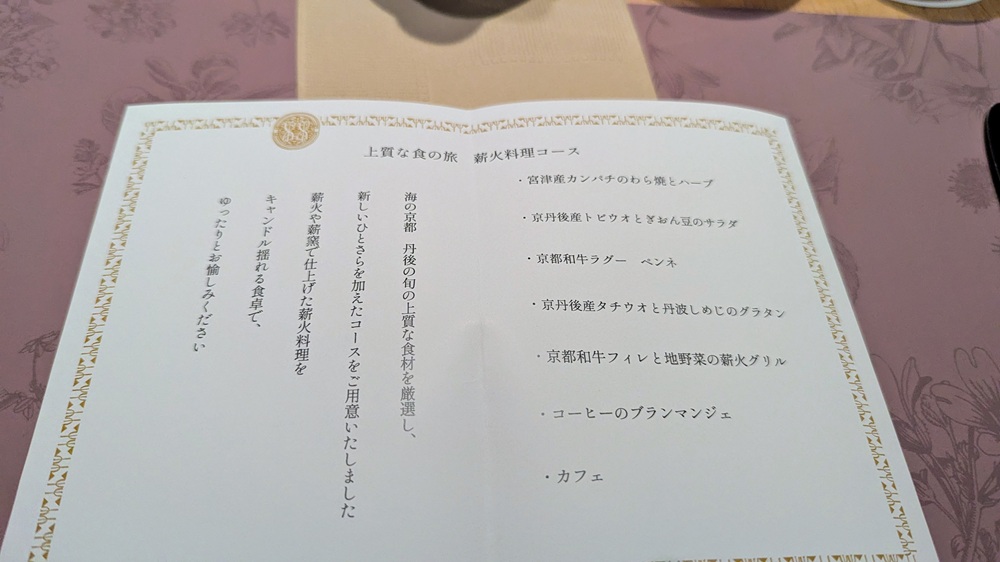 上質な食の旅　薪火料理コース
海の京都　丹後の旬の上質な食材を厳選し、
新しいひとさらを加えたコースをご用意いたしました
薪火や薪窯で仕上げた薪火料理を
キャンドル揺れる食卓で、
ゆったりとお愉しみください
・宮津産カンパチのわら焼とハーブ
・京丹後産トビウオとぎおん豆のサラダ
・京都和牛ラグー　ペンネ
・京丹後産タチウオと丹波しめじのグラタン
・京都和牛フィレと地野菜の薪火グリル
・コーヒーのブランマンジェ
・カフェ